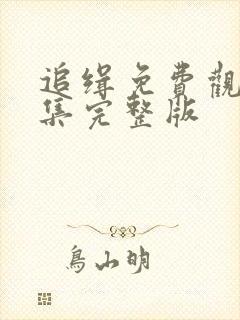 追缉免費觀
集完整版
鳥山明